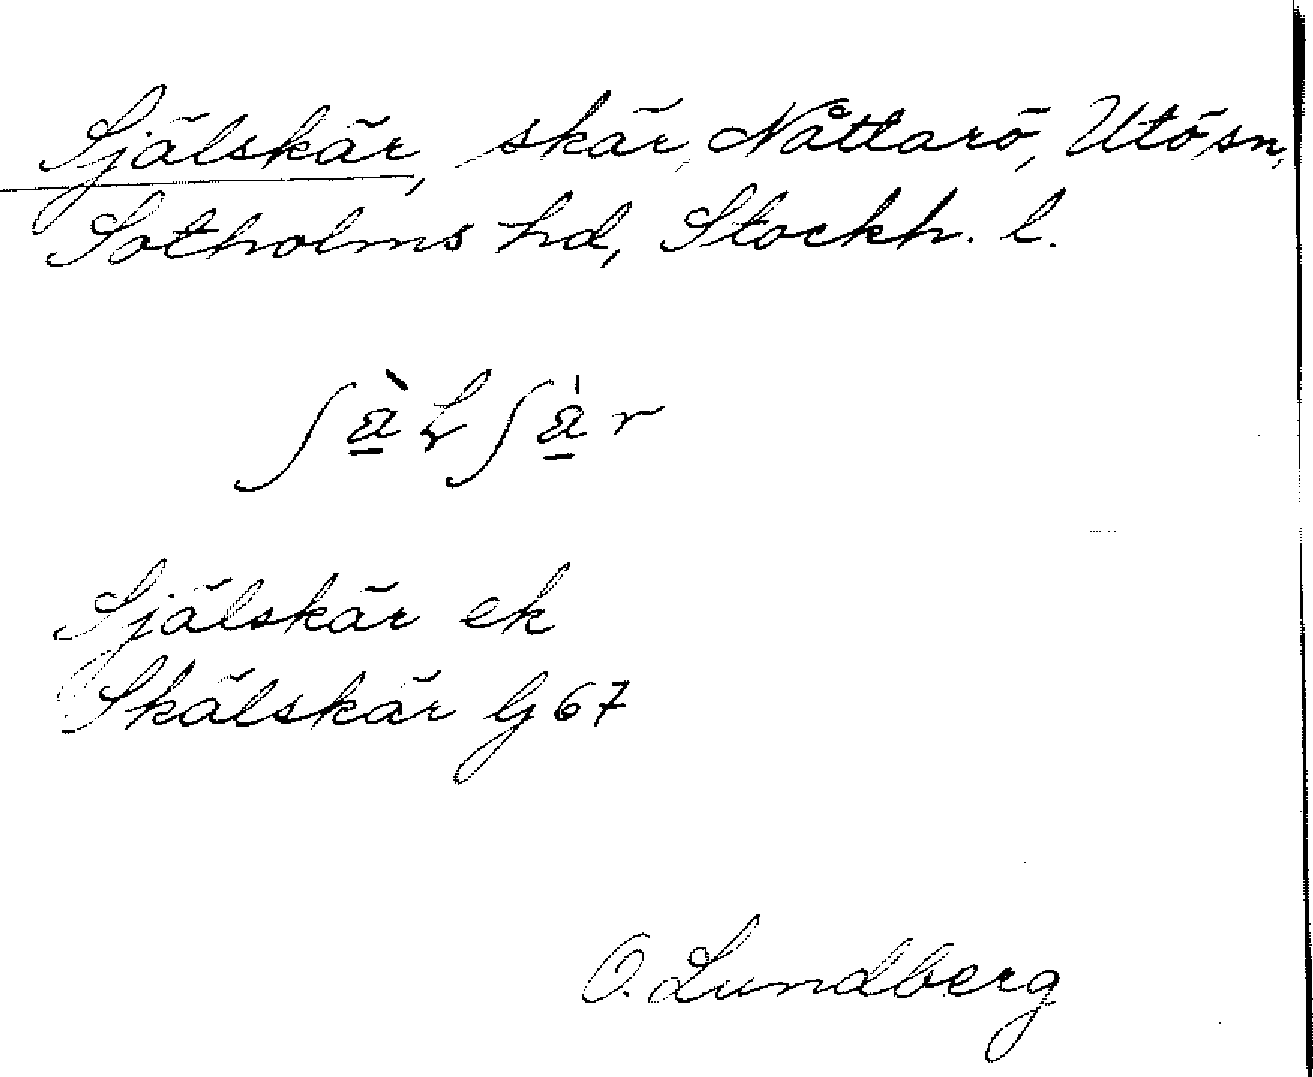 Själskär, skär, Nåttarö, Utö sn,
Sotholms hd, Stockh. l.
Själskär ek
Skälskär G 67
O. Lundberg